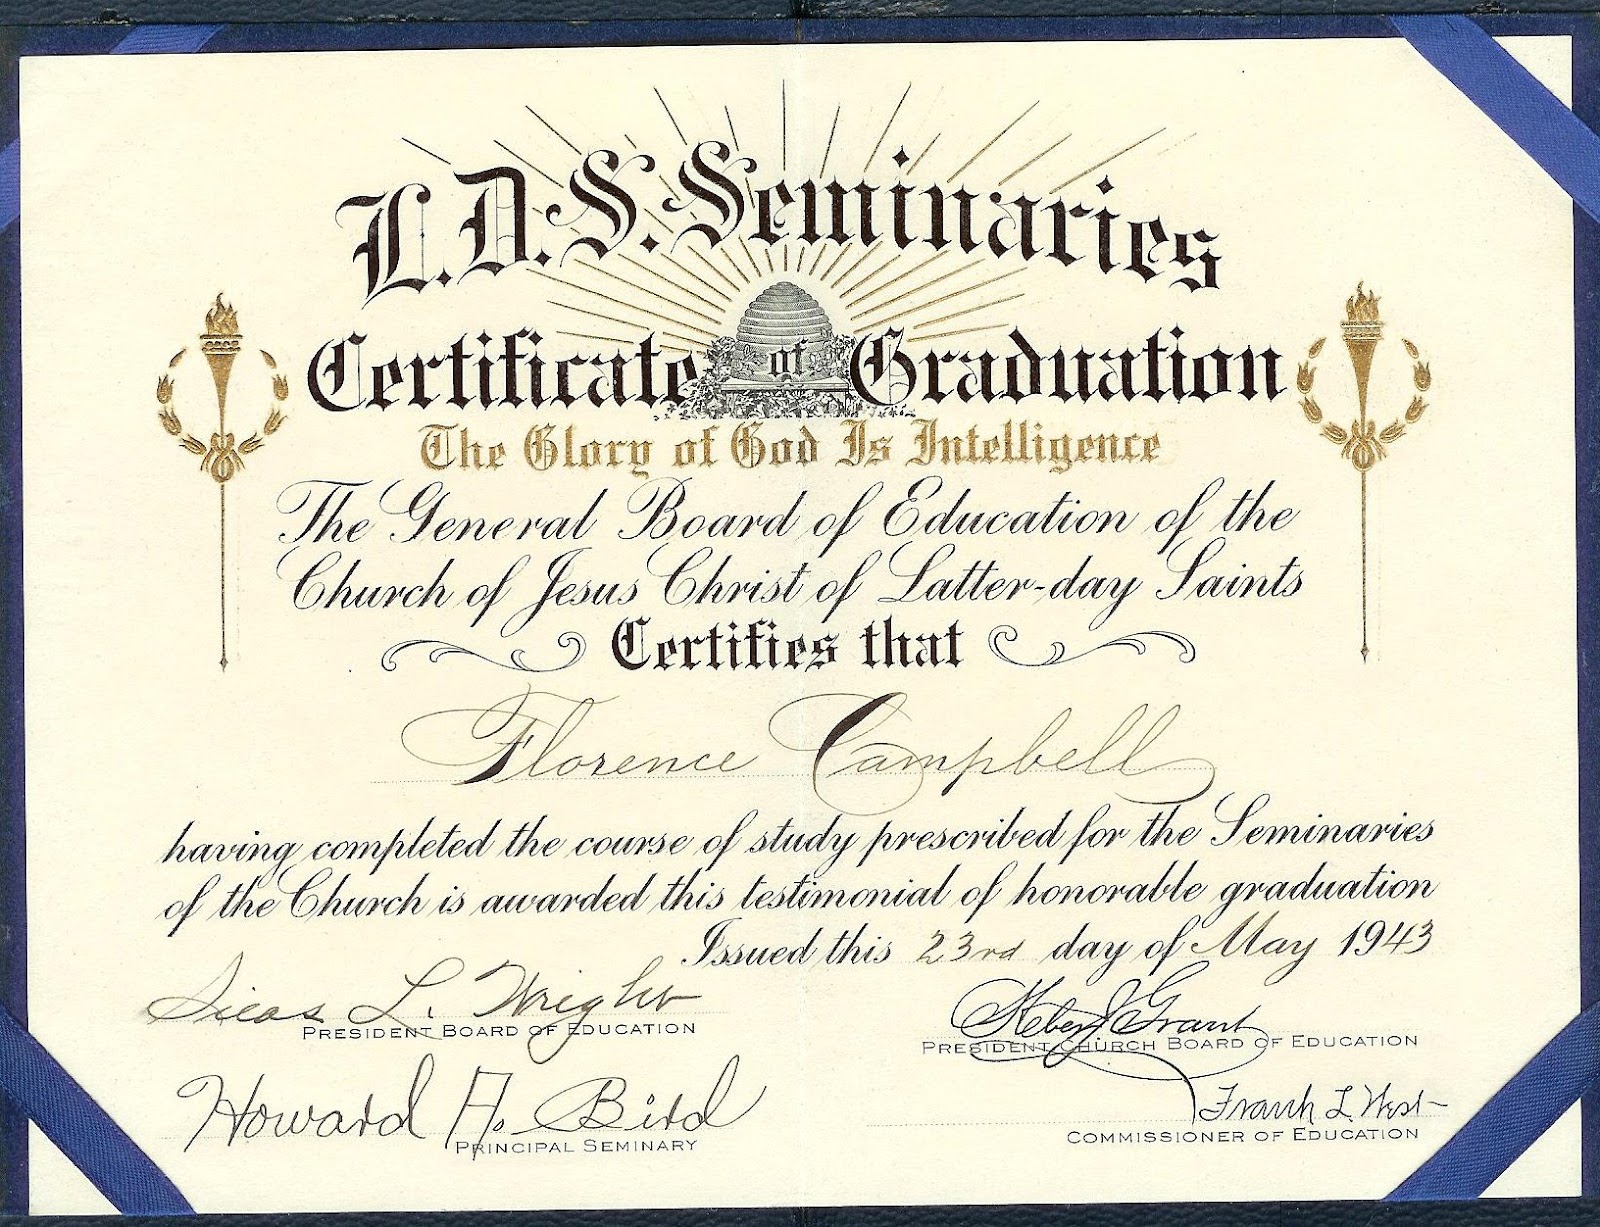 L.D.S. Seminaries
Certificate of Graduation
The Glory of God Is Intelligence
The General Board of Education of the
Church of Jesus Christ of Latter-day Saints
Certifies that
Florence Campbell
having completed the course of study prescribed for the Seminaries
of the Church is awarded this testimonial of honorable graduation
Issued this 23rd day of May 1943
Silas L. Wright
PRESIDENT BOARD OF EDUCATION
Heber J Grant
PRESIDENT CHURCH BOARD OF EDUCATION
Howard A. Bird
PRINCIPAL SEMINARY
Frank L West
COMMISSIONER OF EDUCATION